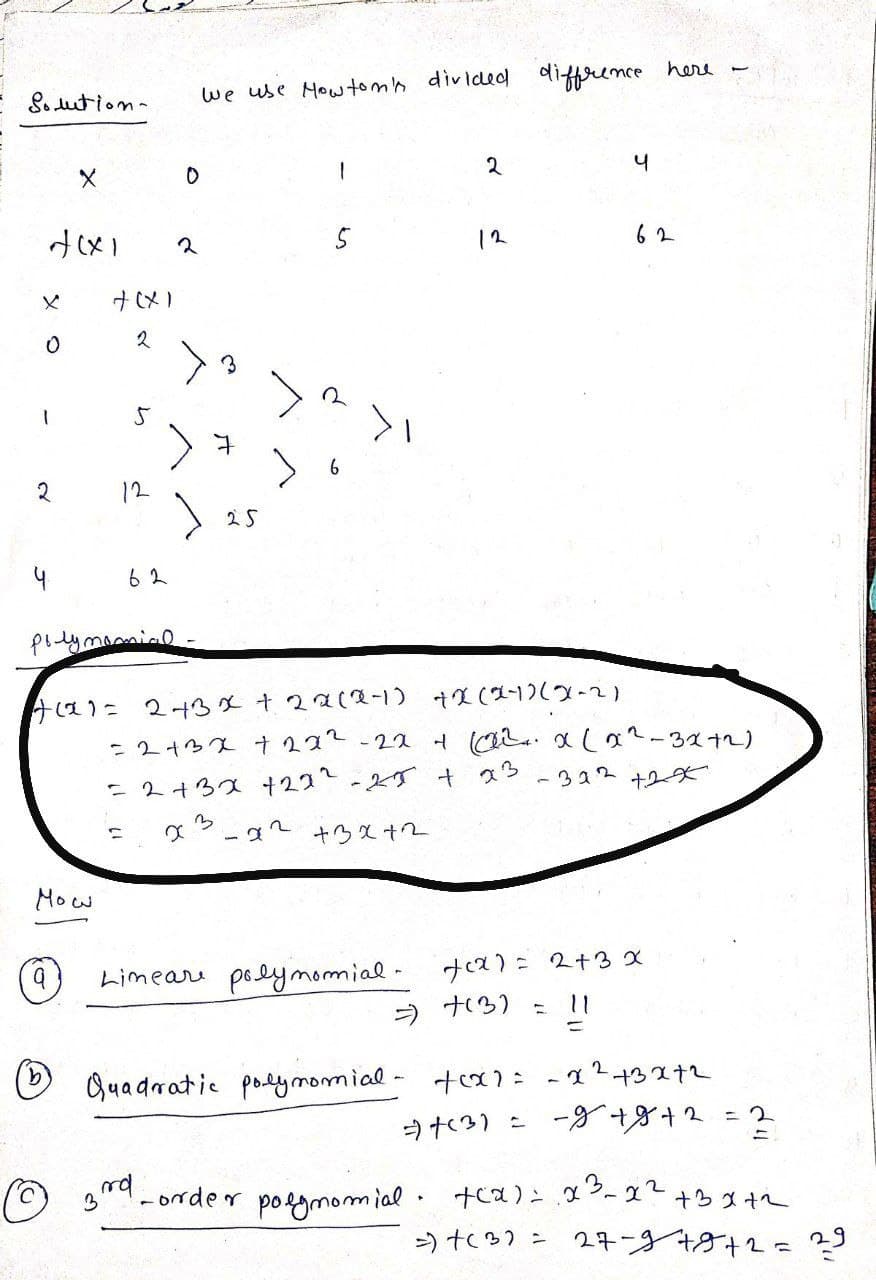 Solution- We use Newton's divided diffrence here -
x 0 1 2 4
f(x) 2 5 12 62
x f(x)
0 2
> 3
> 2
1 5 > 1
> 7
> 6
2 12
> 25
4 62
polynomial -
f(x) = 2+3x + 2x(x-1) + x(x-1)(x-2)
= 2+3x + 2x² - 2x + x(x²-3x+2)
= 2+3x +2x² - 2x + x³ - 3x² + 2x
= x³ - x² + 3x + 2
Now
(a) Lineare polynomial - f(x) = 2+3x
⇒ f(3) = 11
(b) Quadratic polynomial - f(x) = -x²+3x+2
⇒ f(3) = -9+9+2 = 2
(c) 3rd-order polynomial . f(x) = x³-x²+3x+2
⇒ f(3) = 27-9+9+2 = 29